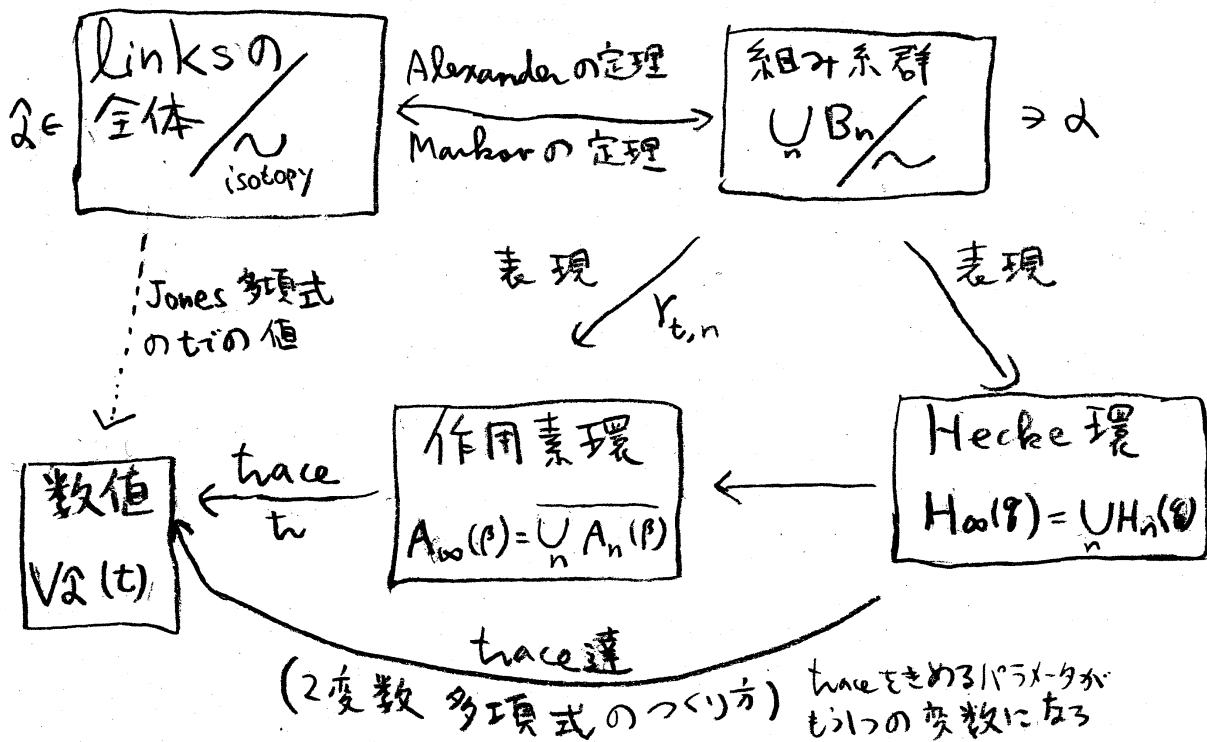 linksの
全体
∼
isotopy
α̂∈
Alexanderの定理
Markovの定理
組み糸群
∪ Bn
n
∼
∋ α
Jones 多項式
のtでの値
表現
r t,n
表現
数値
Vα̂(t)
trace
tr
作用素環
A∞(β)=∪ An(β)
n
Hecke 環
H∞(q)=∪Hn(q)
n
trace達
(2変数 多項式のつくり方)
traceをきめるパラメータが
もう1つの変数になる